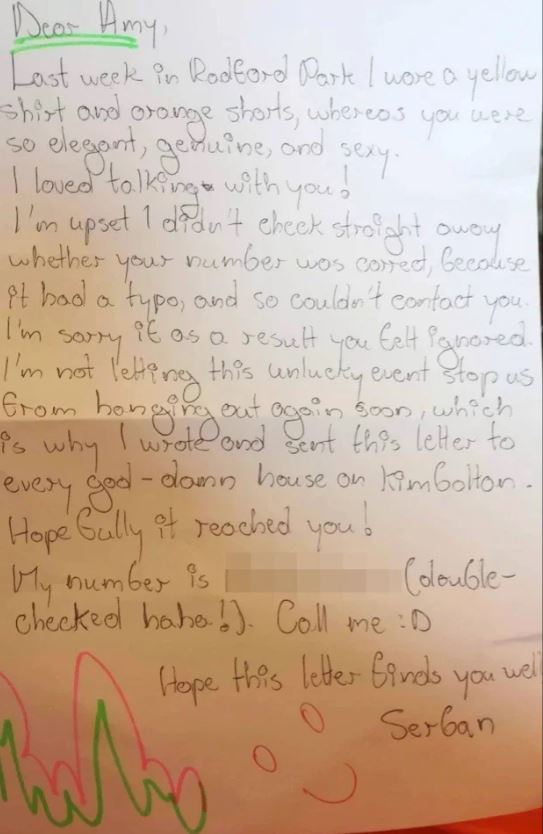 Dear Amy,
Last week in Radford Park I wore a yellow
shirt and orange shorts, whereas you were
so elegant, genuine, and sexy.
I loved talking with you!
I'm upset I didn't check straight away
whether your number was correct, because
it had a typo, and so couldn't contact you.
I'm sorry if as a result you felt ignored.
I'm not letting this unlucky event stop us
from hanging out again soon, which
is why I wrote and sent this letter to
every god-damn house on Kimbolton.
Hopefully it reached you!
My number is (double-
checked haha!). Call me :D
Hope this letter finds you well
Serban